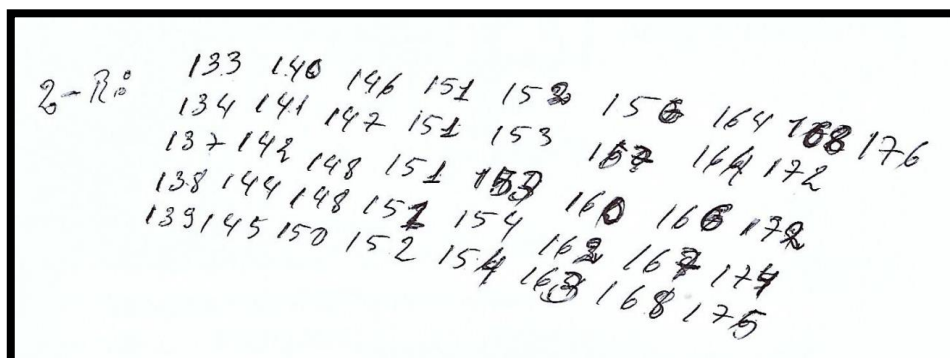 2-R: 133 140 146 151 152 156 164 168 176
134 141 147 151 153 157 164 172
137 142 148 151 153 160 166 172
138 144 148 151 154 162 167 174
139 145 150 152 154 163 168 175